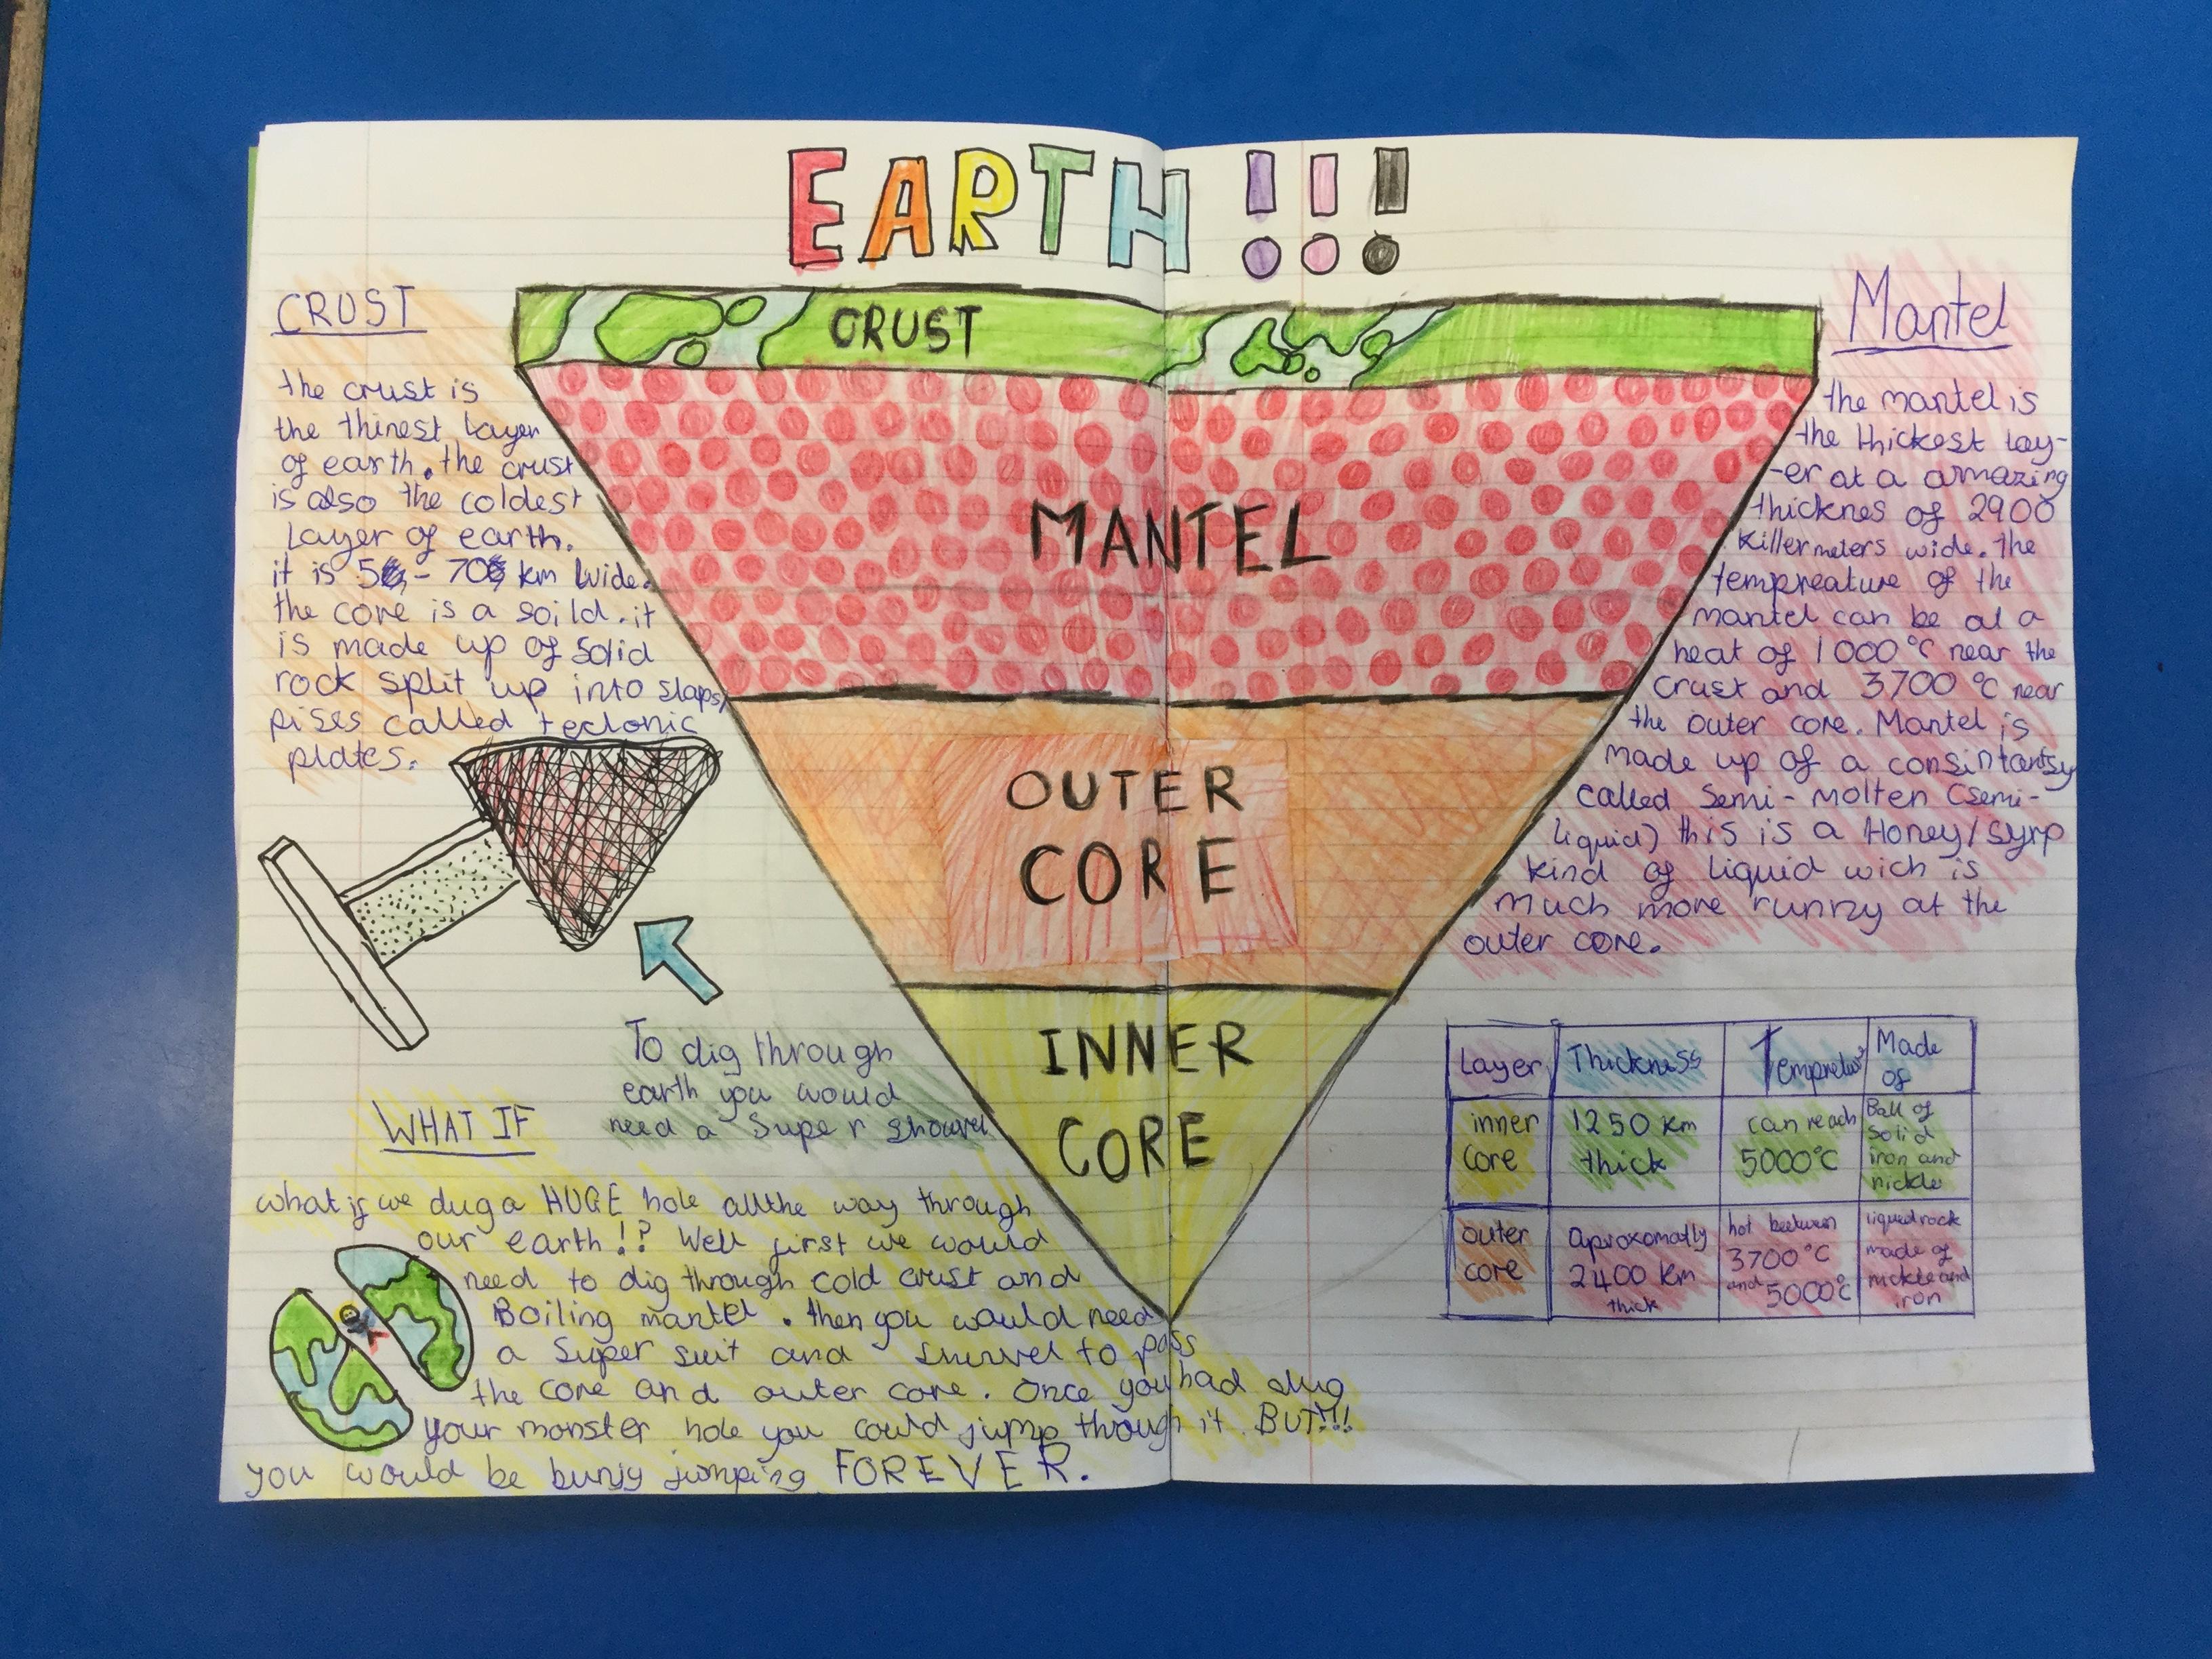 EARTH!!!
CRUST
the crust is
the thinest layer
of earth. the crust
is also the coldest
layer of earth.
it is 5 - 70 km wide.
the core is a soild. it
is made up of solid
rock split up into slaps/
pises called tectonic
plates.
To dig through
earth you would
need a Super showvel
WHAT IF
what if we dug a HUGE hole all the way through
our earth!? Well first we would
need to dig through cold crust and
Boiling mantel. then you would need
a Super suit and shuvel to pass
the core and outer core. Once you had dug
your monster hole you could jump though it. BUT!!!
you would be bunjy jumping FOREVER.
CRUST
MANTEL
OUTER
CORE
INNER
CORE
Mantel
the mantel is
the thickest lay-
-er at a amazing
thicknes of 2900
killermeters wide. the
tempreature of the
mantel can be at a
heat of 1000°C near the
crust and 3700°C near
the outer core. Mantel is
made up of a consintantsy
called Semi-molten (semi-
liquid) this is a Honey/syrp
kind of liquid wich is
much more runny at the
outer core.
Layer Thickness Made
of
inner
core
1250 km
thick
can reach
5000°C
Ball of
solid
iron and
nickle
outer
core
Aproxomatly
2400 km
thick
hot between
3700°C
and 5000°C
liquid rock
made of
nickle and
iron